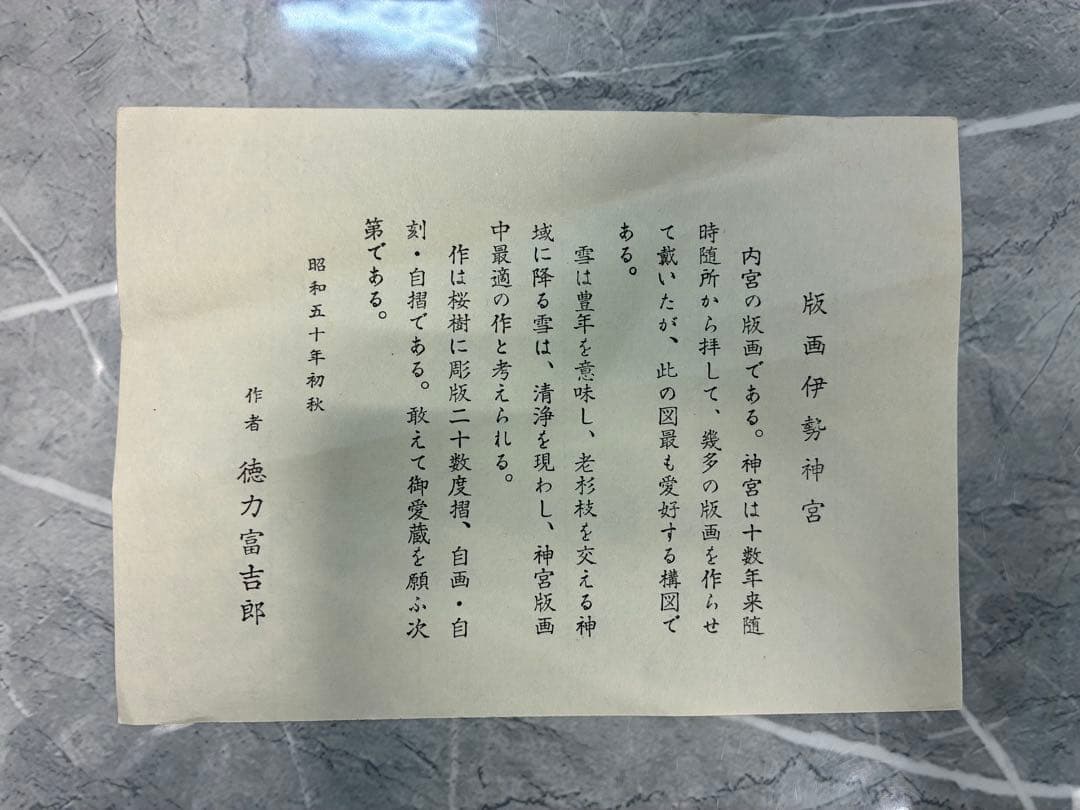 版画伊勢神宮
内宮の版画である。神宮は十数年来随
時随所から拝して、幾多の版画を作らせ
て戴いたが、此の図最も愛好する構図で
ある。
雪は豊年を意味し、老杉枝を交える神
域に降る雪は、清浄を現わし、神宮版画
中最適の作と考えられる。
作は桜樹に彫版二十数度摺、自画・自
刻・自摺である。敢えて御愛蔵を願ふ次
第である。
昭和五十年初秋
作者 徳力富吉郎